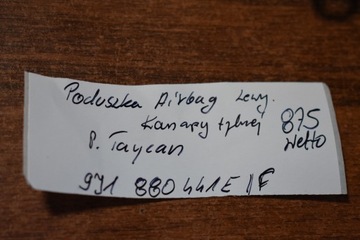 Poduszka Airbag Lewy.
Kanapy tylnej 875
P. Taycan Netto
971 880 441E